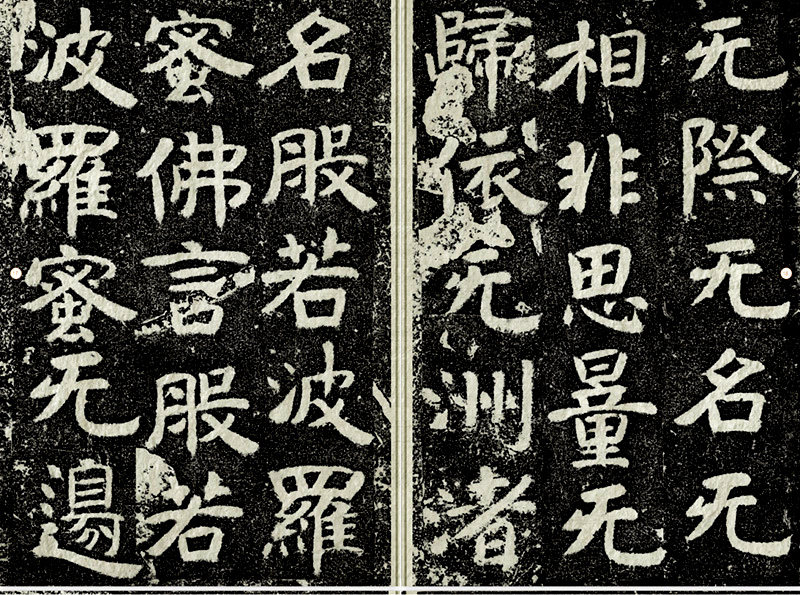 无際无名无
相非思量无
歸依无洲者
名般若波羅
蜜佛言般若
波羅蜜无邊